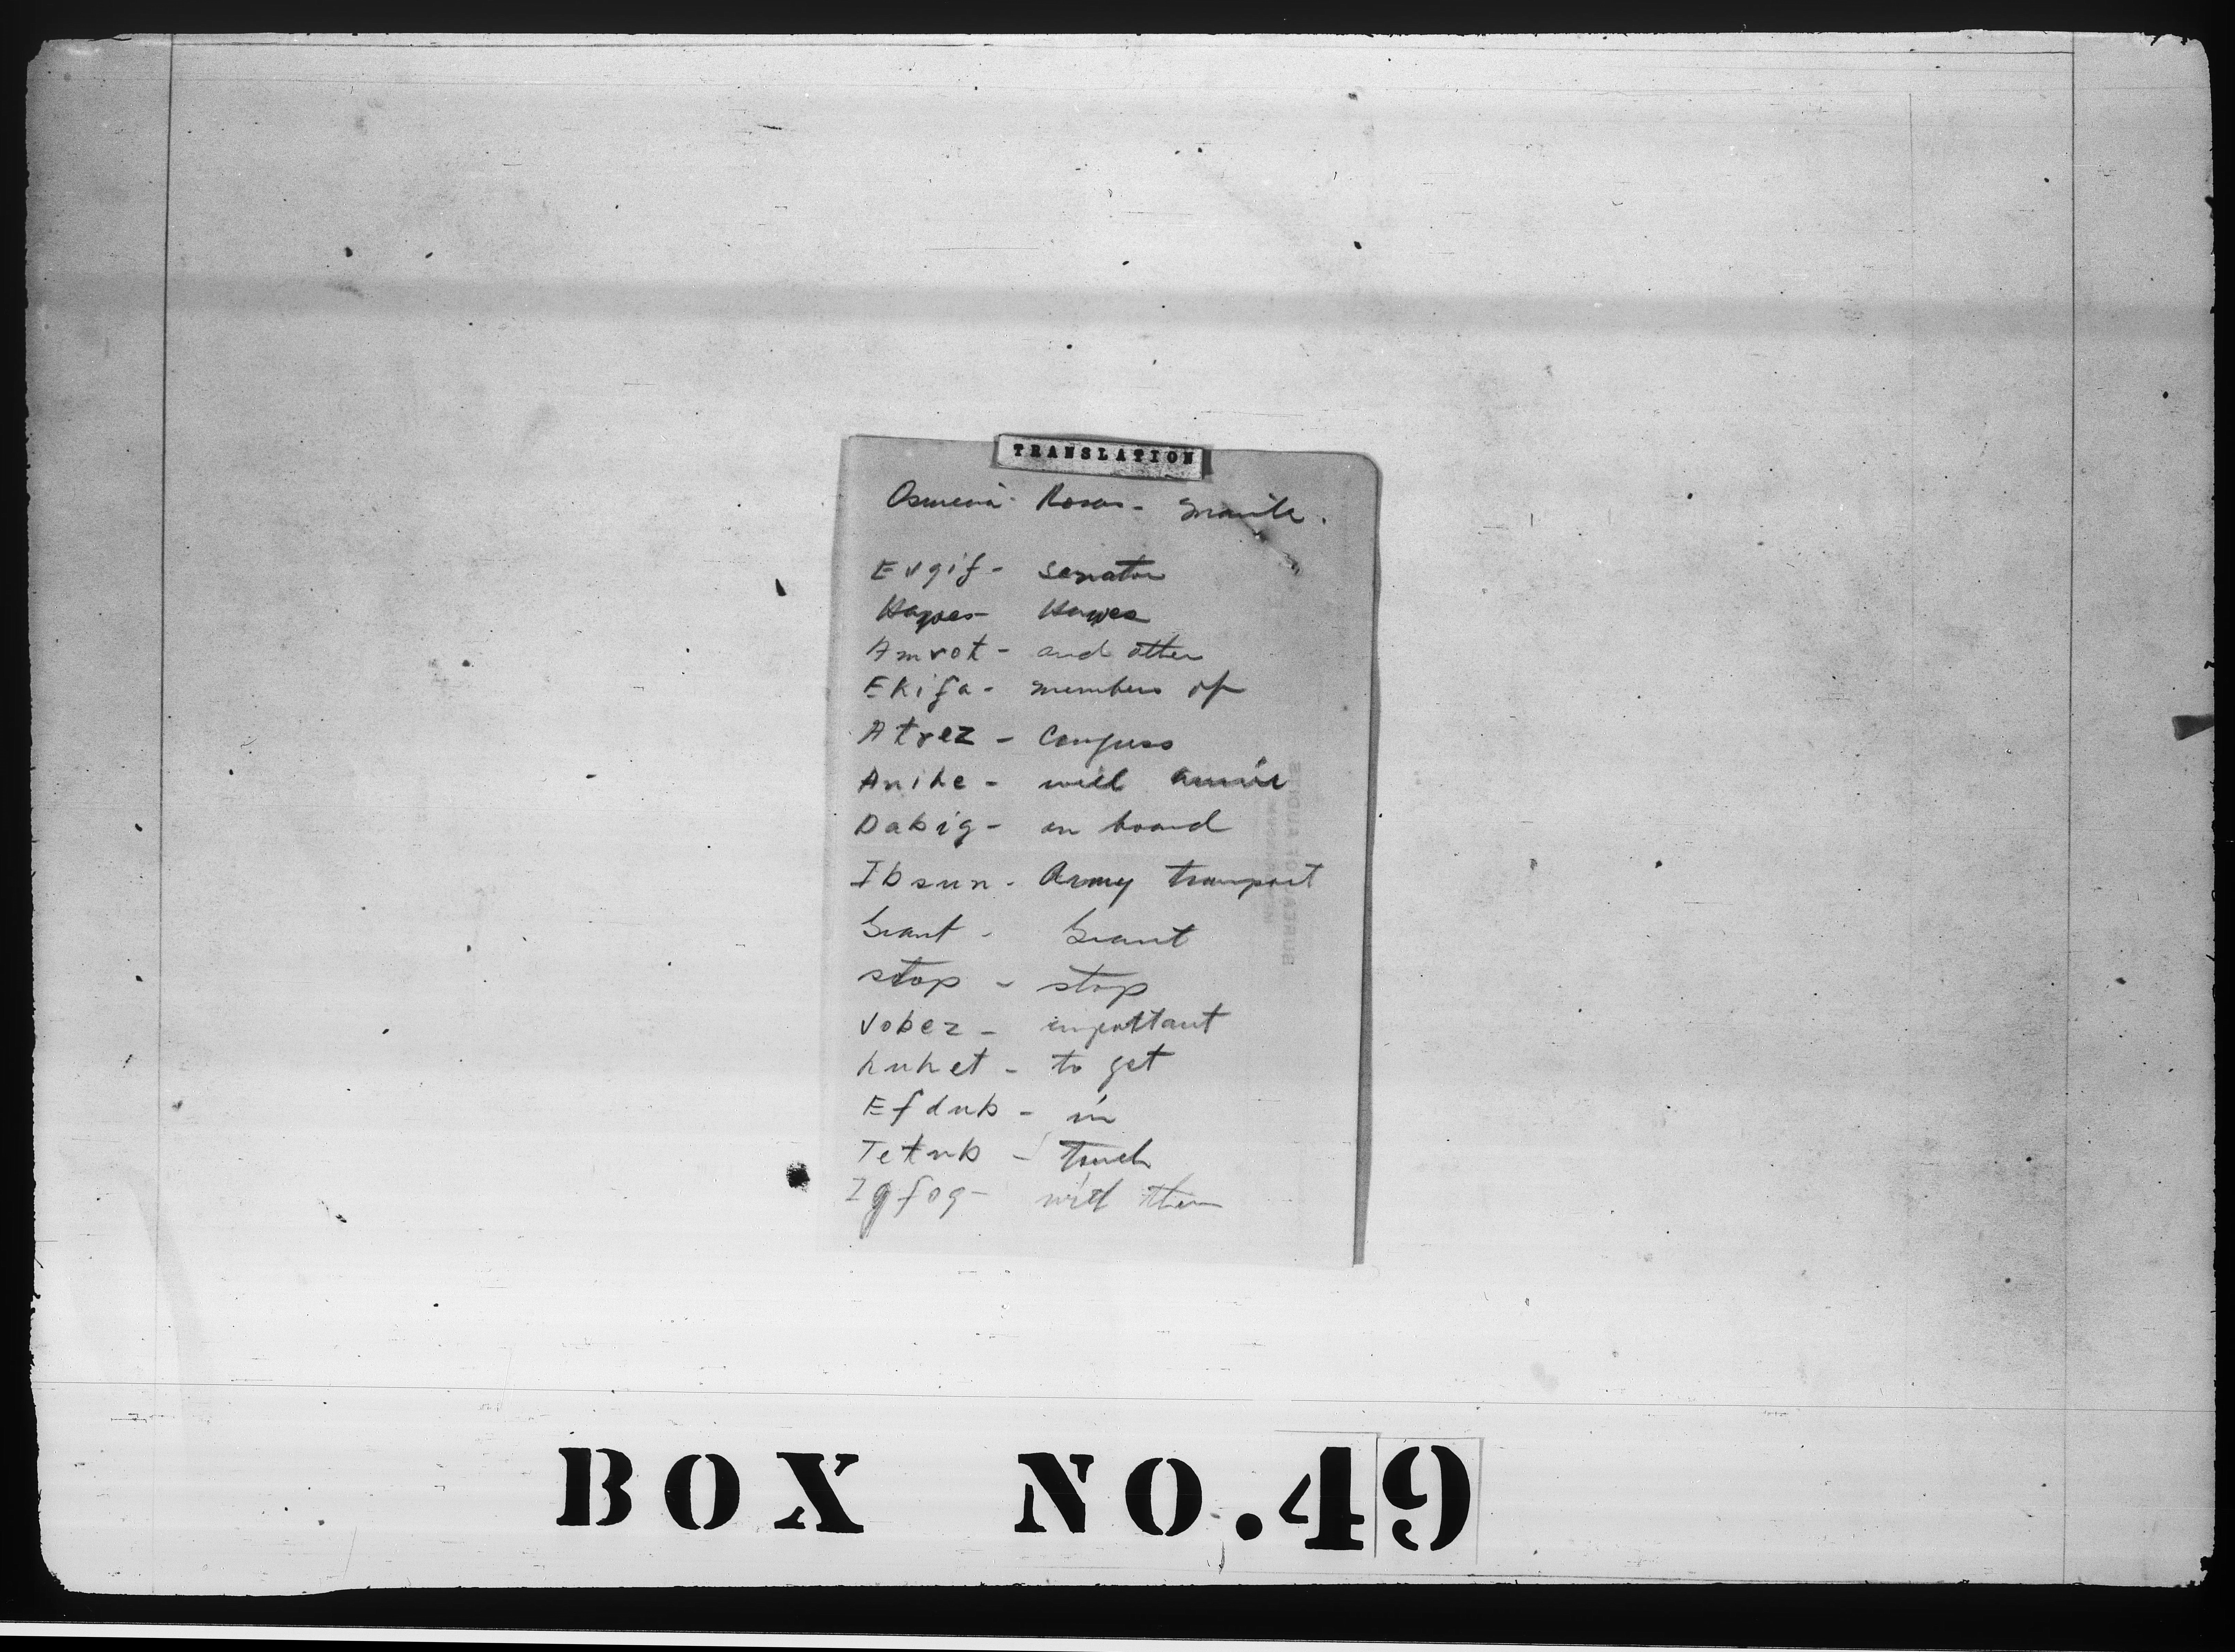 TRANSLATION
Osmeña - Roxas - Manila.
Evgif - Senator
Hawes - Hawes
Amrot - and other
Ekifa - members of
Atrez - Congress
Anihe - will arrive
Dabig - on board
Ibsun - Army transport
Grant - Grant
stop - stop
Vobez - important
Luhet - to get
Efdub - in
Tetub - touch
Igfog - with them
BOX NO.49